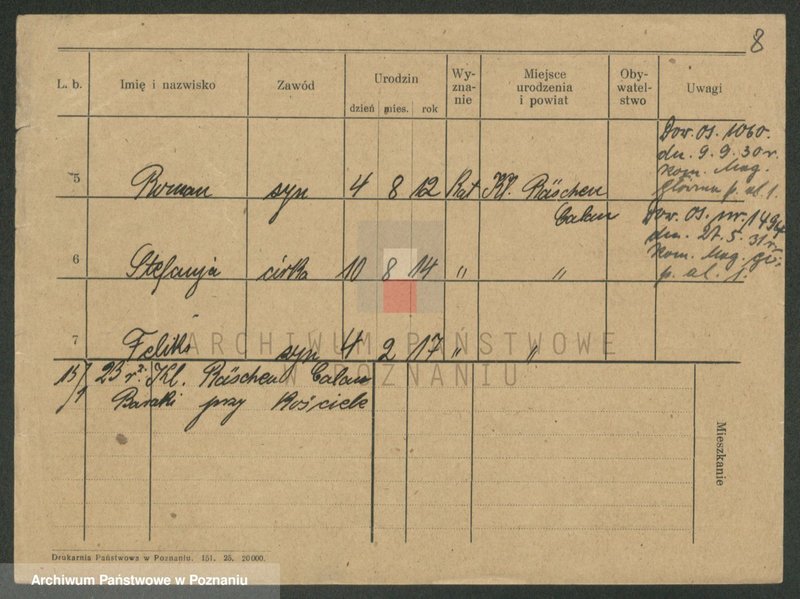 8
L. b. Imię i nazwisko Zawód Urodzin dzień mies. rok Wy-zna-nie Miejsce urodzenia i powiat Oby-watel-stwo Uwagi
5 Roman syn 4 8 12 Kat Kl. Räschen Calau
Dow. os. 1060.
dn. 9. 9. 30 r.
Kom. Mag.
Główna p. al. 1.
6 Stefanja córka 10 8 14 " "
Dow. os. nr. 1494
dn. 27. 5. 31 r.
Kom. Mag. gł.
p. al. 1.
7 Feliks syn 4 2 17 " "
15/1 23 r. Kl. Räschen Calau
Baraki przy Kościele
Mieszkanie
Drukarnia Państwowa w Poznaniu. 151. 25. 20000.
ARCHIWUM PAŃSTWOWE
W POZNANIU
Archiwum Państwowe w Poznaniu